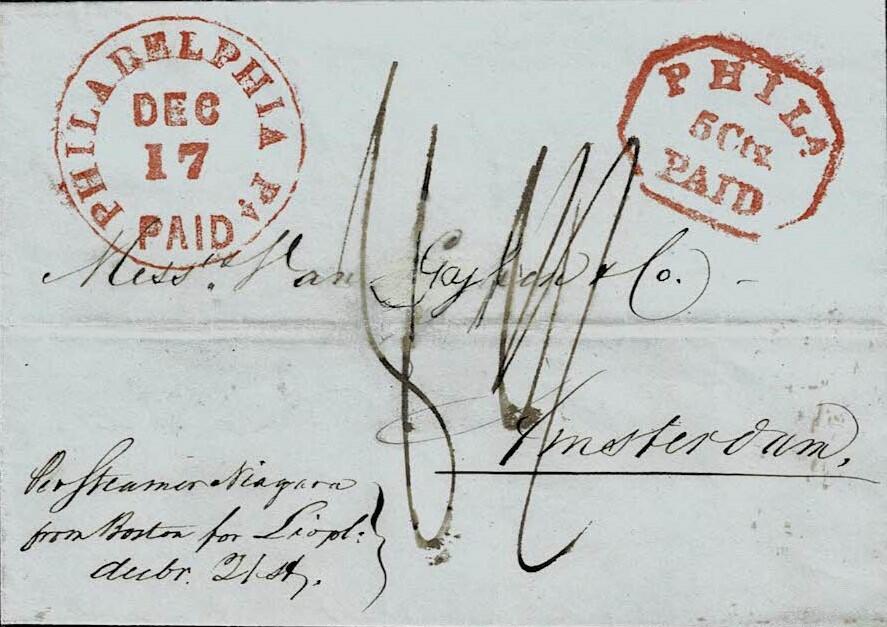 PHILADELPHIA PA
DEC
17
PAID
PHILA
5 Cts
PAID
Messrs. Van & Co.
Amsterdam,
Per Steamer Niagara
from Boston for Livpl:
decbr. 21st,